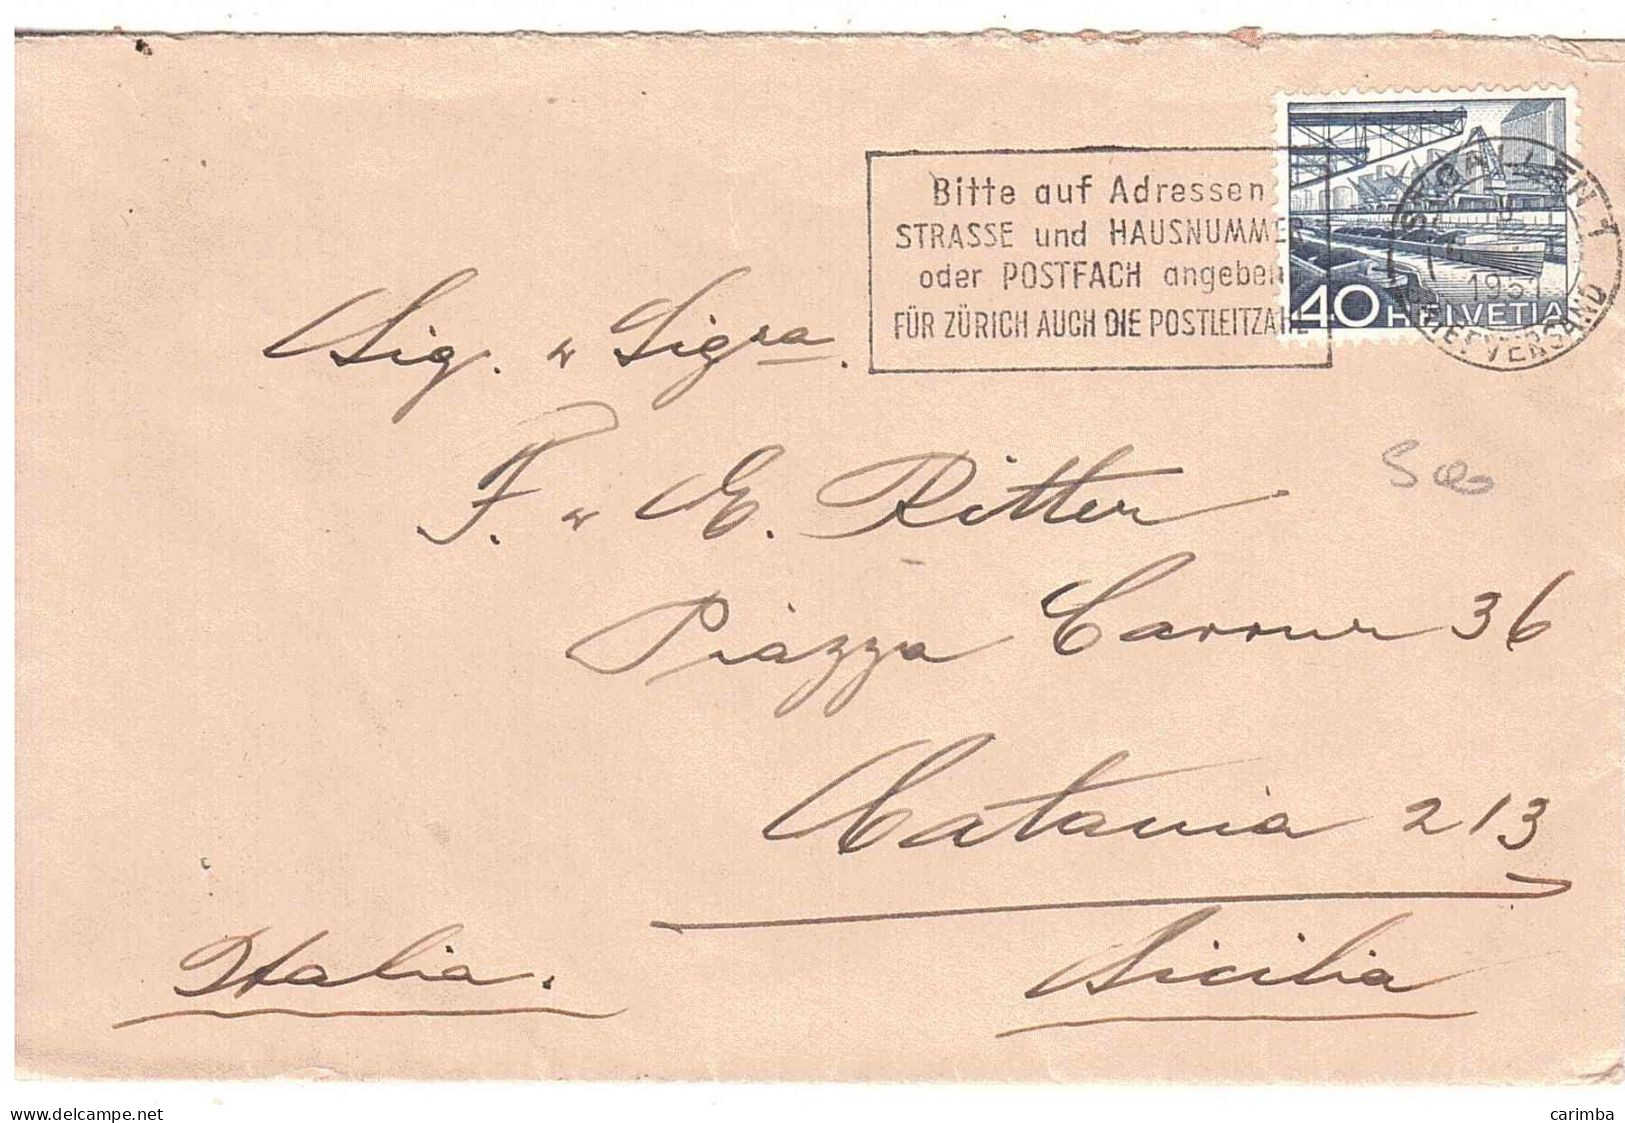 Bitte auf Adressen
STRASSE und HAUSNUMMER
oder POSTFACH angeben
FÜR ZÜRICH AUCH DIE POSTLEITZAHL
40 HELVETIA
ST. GALLEN 1
BRIEFVERSAND
Sig. u Sigra.
F. u E. Ritter
Piazza Cavour 36
Catania 213
Sicilia
Italia.
delcampe.net
carimba